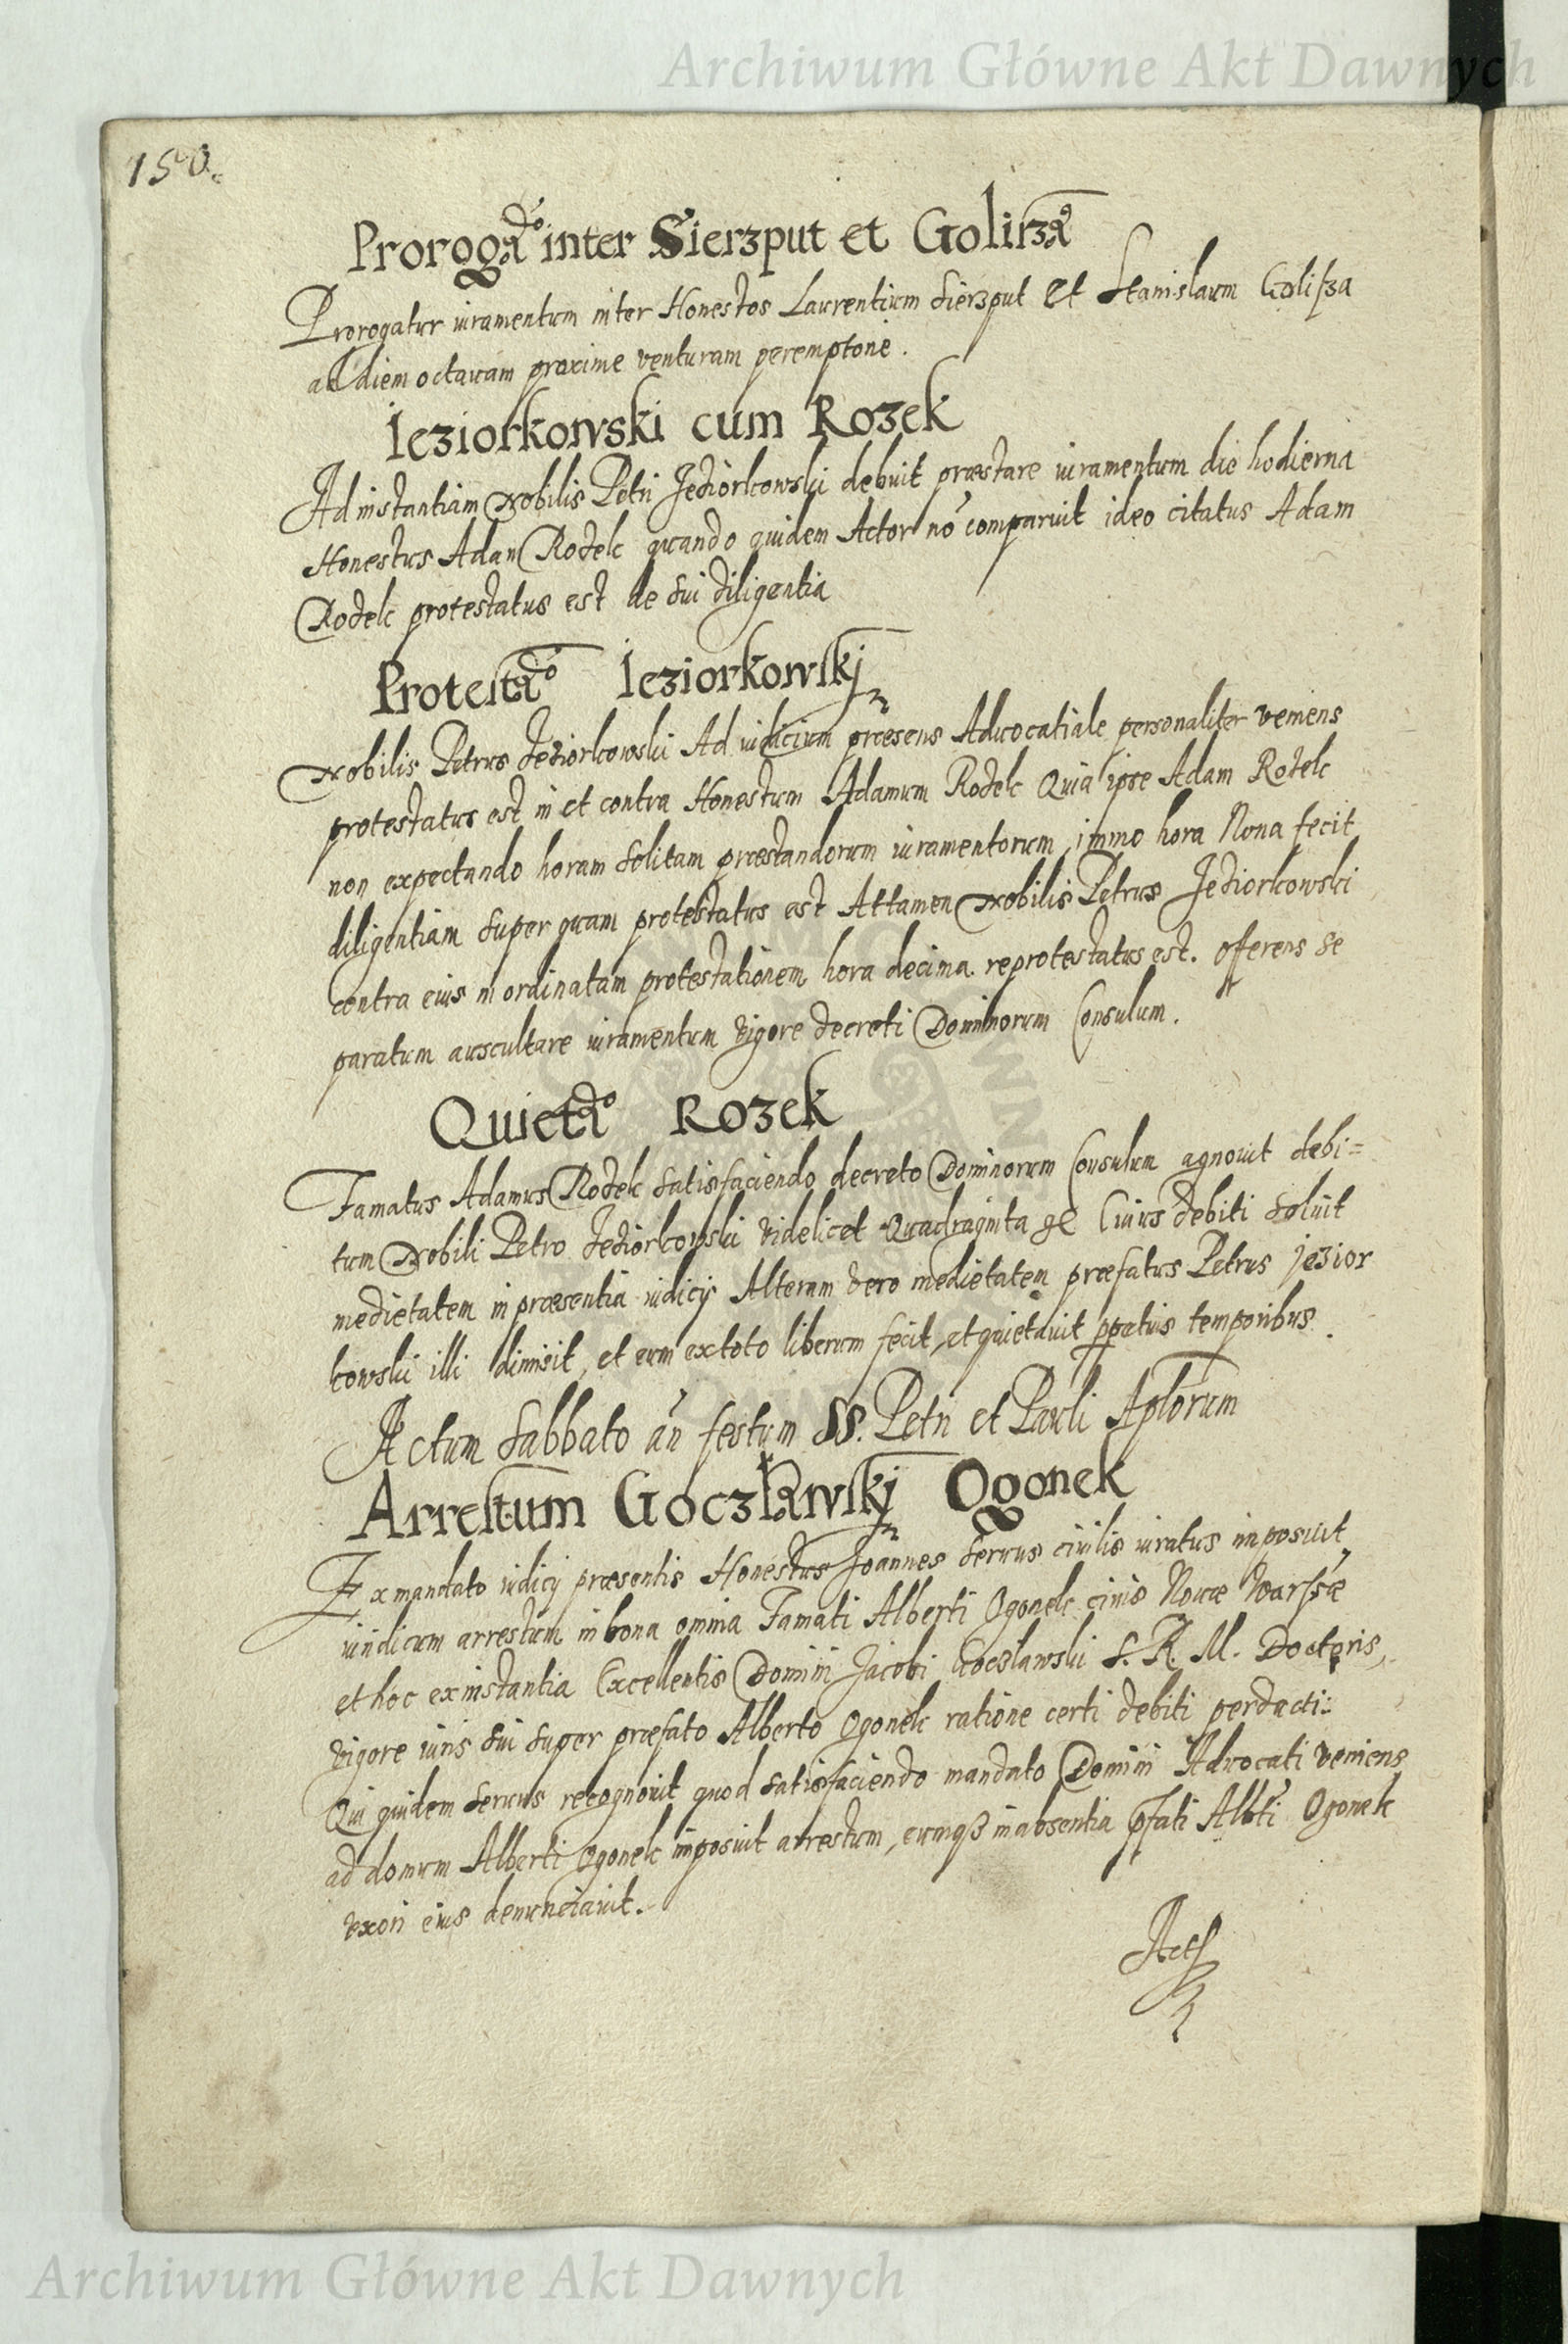 Archiwum Główne Akt Dawnych
150.
Prorogao inter Sierzput et Golirza
Prorogatur iuramentum inter Honestos Laurentium Sierzput Et Stanislaum Golisza
ad diem octauam proxime venturam peremptorie.
Ieziorkowski cum Rozek
Ad instantiam Nobilis Petri Jeziorkowski debuit præstare iuramentum die hodierna
Honestus Adam Rozek quando quidem Actor nō comparuit ideo citatus Adam
Rozek protestatus est de sui diligentia
Protestaō Ieziorkowskj
Nobilis Petrus Jeziorkowski Ad iudicium præsens Aduocatiale personaliter veniens
protestatus est in et contra Honestum Adamum Rozek Quia ipse Adam Rozek
non expectando horam solitam præstandorum iuramentorum, immo hora Nona fecit
diligentiam super quam protestatus est Attamen Nobilis Petrus Jeziorkowski
contra eius inordinatam protestationem hora decima reprotestatus est. offerens se
paratum auscultare iuramentum vigore decreti Dominorum Consulum.
Quietaō Rozek
Famatus Adamus Rozek satisfaciendo decreto Dominorum Consulum agnouit debi=
tum Nobili Petro Jeziorkowski videlicet Quadraginta gr Cuius debiti soluit
medietatem in præsentia iudicij Alteram vero medietatem præfatus Petrus Jezior
kowski illi dimisit, et eum extoto liberum fecit, et quietauit ppetuis temporibus.
Actum Sabbato añ festum SS. Petri et Pauli Aplorum
Arrestum Goczławskj Ogonek
Ex mandato iudicij præsentis Honestus Joannes seruus ciuilis iuratus imposuit
iuridicum arrestum in bona omnia Famati Alberti Ogonek ciuis Nouæ Warsꝭæ
et hoc ex instantia Excellentis Domini Jacobi Goczławski S. R. M. Doctoris,
vigore iuris sui super præfato Alberto Ogonek ratione certi debiti perducti:
Qui quidem seruus recognouit quod satisfaciendo mandato Domini Aduocati veniens
ad domum Alberti Ogonek imposuit arrestum, eumqȝ in absentia pfati Albti Ogonek
vxori eius denunciauit.
Act
Archiwum Główne Akt Dawnych